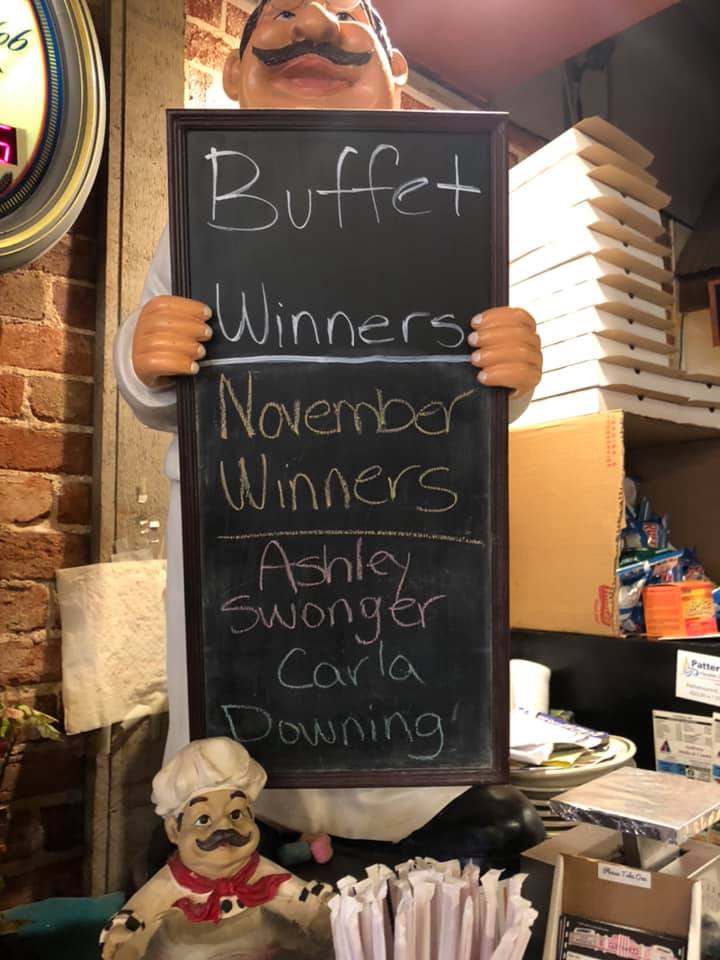 Buffet
Winners
November
Winners
Ashley
Swonger
Carla
Downing
Patter
Please Take One